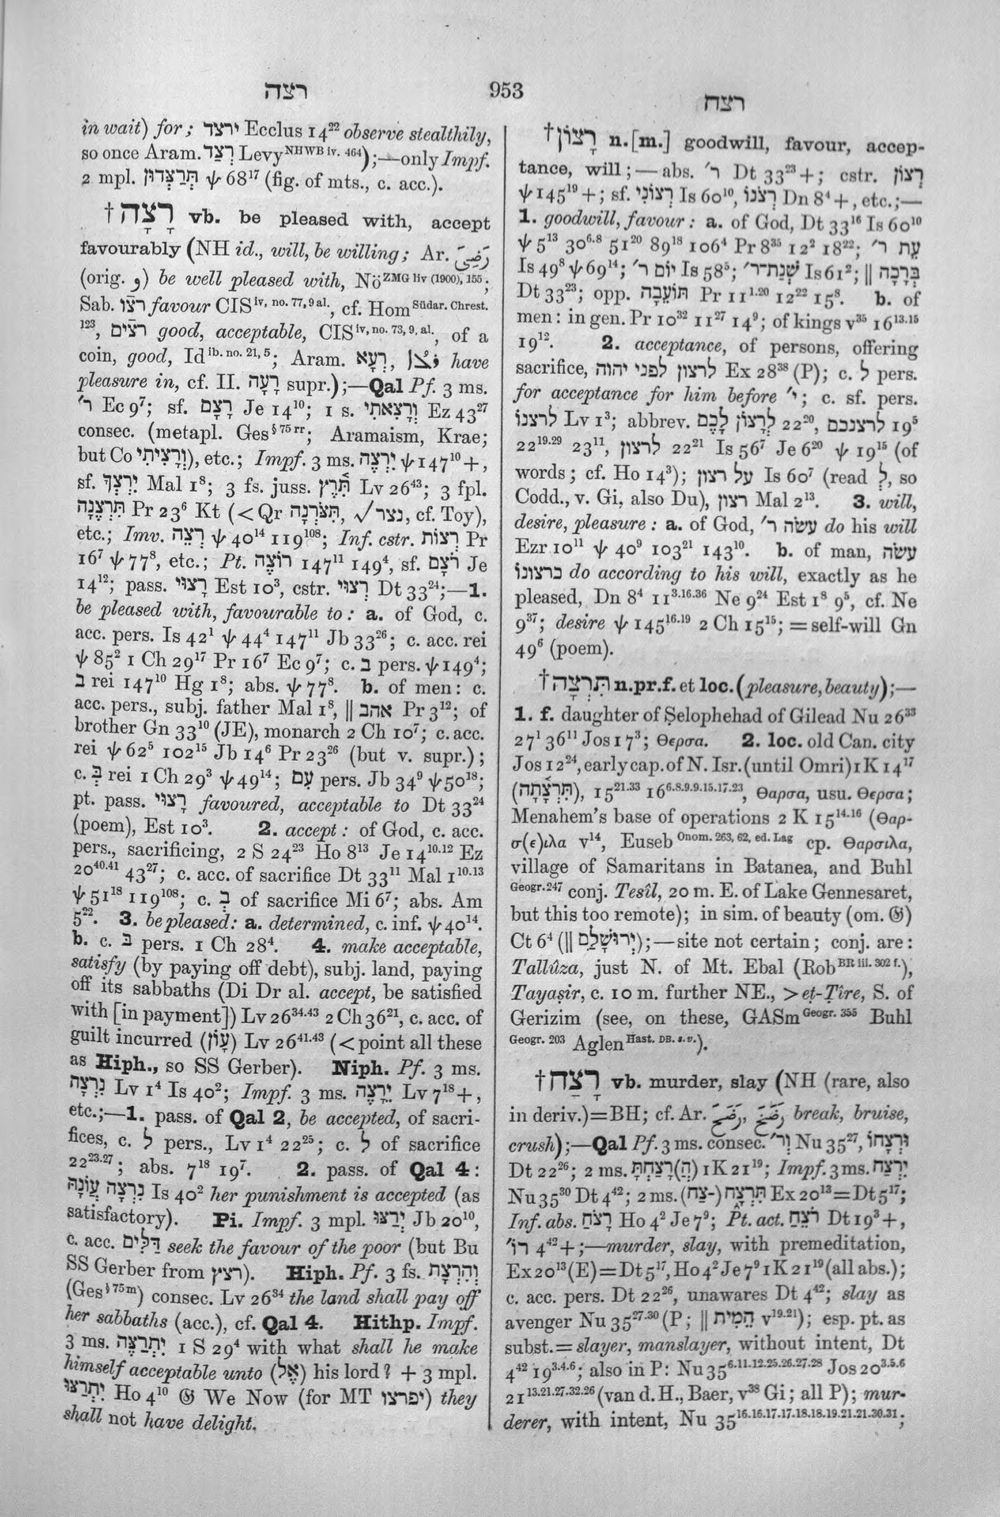 רצה
953
רצח
in wait) for; ירצד Ecclus 14²² observe stealthily,
so once Aram. רְצַד Levy NHWB iv. 464);—only Impf.
2 mpl. תְּרַצְּדוּן ψ 68¹⁷ (fig. of mts., c. acc.).
† רָצָה vb. be pleased with, accept
favourably (NH id., will, be willing; Ar. رَضِيَ
(orig. و) be well pleased with, Nö ZMG liv (1900), 155;
Sab. רצו favour CIS iv, no. 77, 9 al., cf. Hom Südar. Chrest.
123, רצים good, acceptable, CIS iv, no. 73, 9, al. of a
coin, good, Id ib. no. 21, 5; Aram. רְעָא, ܪܥܐ have
pleasure in, cf. II. רָעָה supr.);—Qal Pf. 3 ms.
ר׳ Ec 9⁷; sf. רָצָם Je 14¹⁰; 1 s. וְרָצִאתִי Ez 43²⁷
consec. (metapl. Ges § 75 rr; Aramaism, Krae;
but Co וְרָצִיתִי), etc.; Impf. 3 ms. יִרְצֶה ψ 147¹⁰ +,
sf. יִרְצְךָ Mal 1⁸; 3 fs. juss. תִּרֶץ Lv 26⁴³; 3 fpl.
תִּרְצֶנָה Pr 23⁶ Kt (< Qr תִּצֹּרְנָה, √נצר, cf. Toy),
etc.; Imv. רְצֵה ψ 40¹⁴ 119¹⁰⁸; Inf. cstr. רְצוֹת Pr
16⁷ ψ 77⁸, etc.; Pt. רוֹצֶה 147¹¹ 149⁴, sf. רֹצָם Je
14¹²; pass. רָצוּי Est 10³, cstr. רְצוּי Dt 33²⁴;—1.
be pleased with, favourable to: a. of God, c.
acc. pers. Is 42¹ ψ 44⁴ 147¹¹ Jb 33²⁶; c. acc. rei
ψ 85² 1 Ch 29¹⁷ Pr 16⁷ Ec 9⁷; c. ב pers. ψ 149⁴;
ב rei 147¹⁰ Hg 1⁸; abs. ψ 77⁸. b. of men: c.
acc. pers., subj. father Mal 1⁸, || אהב Pr 3¹²; of
brother Gn 33¹⁰ (JE), monarch 2 Ch 10⁷; c. acc.
rei ψ 62⁵ 102¹⁵ Jb 14⁶ Pr 23²⁶ (but v. supr.);
c. בְּ rei 1 Ch 29³ ψ 49¹⁴; עִם pers. Jb 34⁹ ψ 50¹⁸;
pt. pass. רָצוּי favoured, acceptable to Dt 33²⁴
(poem), Est 10³. 2. accept: of God, c. acc.
pers., sacrificing, 2 S 24²³ Ho 8¹³ Je 14¹⁰·¹² Ez
20⁴⁰·⁴¹ 43²⁷; c. acc. of sacrifice Dt 33¹¹ Mal 1¹⁰·¹³
ψ 51¹⁸ 119¹⁰⁸; c. בְּ of sacrifice Mi 6⁷; abs. Am
5²². 3. be pleased: a. determined, c. inf. ψ 40¹⁴.
b. c. ב pers. 1 Ch 28⁴. 4. make acceptable,
satisfy (by paying off debt), subj. land, paying
off its sabbaths (Di Dr al. accept, be satisfied
with [in payment]) Lv 26³⁴·⁴³ 2 Ch 36²¹, c. acc. of
guilt incurred (עָוֹן) Lv 26⁴¹·⁴³ (< point all these
as Hiph., so SS Gerber). Niph. Pf. 3 ms.
נִרְצָה Lv 1⁴ Is 40²; Impf. 3 ms. יֵרָצֶה Lv 7¹⁸ +,
etc.;—1. pass. of Qal 2, be accepted, of sacri-
fices, c. ל pers., Lv 1⁴ 22²⁵; c. ל of sacrifice
22²³·²⁷; abs. 7¹⁸ 19⁷. 2. pass. of Qal 4:
נִרְצָה עֲוֹנָהּ Is 40² her punishment is accepted (as
satisfactory). Pi. Impf. 3 mpl. יְרַצּוּ Jb 20¹⁰,
c. acc. דַלִּים seek the favour of the poor (but Bu
SS Gerber from רצץ). Hiph. Pf. 3 fs. וְהִרְצָת
(Ges § 75 m) consec. Lv 26³⁴ the land shall pay off
her sabbaths (acc.), cf. Qal 4. Hithp. Impf.
3 ms. יִתְרַצֶּה 1 S 29⁴ with what shall he make
himself acceptable unto (אֶל) his lord? + 3 mpl.
יִתְרַצּוּ Ho 4¹⁰ 𝔊 We Now (for MT יפרצו) they
shall not have delight.
† רָצוֹן n.[m.] goodwill, favour, accep-
tance, will;—abs. ר׳ Dt 33²³ +; cstr. רְצוֹן
ψ 145¹⁹ +; sf. רְצוֹנִי Is 60¹⁰, רְצֹנוֹ Dn 8⁴ +, etc.;—
1. goodwill, favour: a. of God, Dt 33¹⁶ Is 60¹⁰
ψ 5¹³ 30⁶·⁸ 51²⁰ 89¹⁸ 106⁴ Pr 8³⁵ 12² 18²²; עֵת ר׳
Is 49⁸ ψ 69¹⁴; יוֹם ר׳ Is 58⁵; שְׁנַת־ר׳ Is 61²; || בְּרָכָה
Dt 33²³; opp. תּוֹעֵבָה Pr 11¹·²⁰ 12²² 15⁸. b. of
men: in gen. Pr 10³² 11²⁷ 14⁹; of kings v³⁵ 16¹³·¹⁵
19¹². 2. acceptance, of persons, offering
sacrifice, לרצון לפני יהוה Ex 28³⁸ (P); c. ל pers.
for acceptance for him before י׳; c. sf. pers.
לרצנו Lv 1³; abbrev. לְרָצוֹן לָכֶם 22²⁰, לרצנכם 19⁵
22¹⁹·²⁹ 23¹¹, לרצון 22²¹ Is 56⁷ Je 6²⁰ ψ 19¹⁵ (of
words; cf. Ho 14³); על רצון Is 60⁷ (read לְ, so
Codd., v. Gi, also Du), רצון Mal 2¹³. 3. will,
desire, pleasure: a. of God, עשׂה ר׳ do his will
Ezr 10¹¹ ψ 40⁹ 103²¹ 143¹⁰. b. of man, עשׂה
כרצונו do according to his will, exactly as he
pleased, Dn 8⁴ 11³·¹⁶·³⁶ Ne 9²⁴ Est 1⁸ 9⁵, cf. Ne
9³⁷; desire ψ 145¹⁶·¹⁹ 2 Ch 15¹⁵; = self-will Gn
49⁶ (poem).
† תִּרְצָה n.pr.f. et loc. (pleasure, beauty);—
1. f. daughter of Ṣelophehad of Gilead Nu 26³³
27¹ 36¹¹ Jos 17³; Θερσα. 2. loc. old Can. city
Jos 12²⁴, early cap. of N. Isr. (until Omri) 1 K 14¹⁷
(תִּרְצָתָה), 15²¹·³³ 16⁶·⁸·⁹·⁹·¹⁵·¹⁷·²³, Θαρσα, usu. Θερσα;
Menahem's base of operations 2 K 15¹⁴·¹⁶ (Θαρ-
σ(ε)ιλα v¹⁴, Euseb Onom. 263, 62, ed. Lag cp. Θαρσιλα,
village of Samaritans in Batanea, and Buhl
Geogr. 247 conj. Tesîl, 20 m. E. of Lake Gennesaret,
but this too remote); in sim. of beauty (om. 𝔊)
Ct 6⁴ (|| יְרוּשָׁלִַם);—site not certain; conj. are:
Tallûza, just N. of Mt. Ebal (Rob BR iii. 302 f.),
Tayaṣir, c. 10 m. further NE., > eṭ-Ṭîre, S. of
Gerizim (see, on these, GASm Geogr. 355 Buhl
Geogr. 203 Aglen Hast. DB. s.v.).
† רָצַח vb. murder, slay (NH (rare, also
in deriv.)=BH; cf. Ar. رَضَخَ, رَضَحَ break, bruise,
crush);—Qal Pf. 3 ms. consec. וְר׳ Nu 35²⁷, וּרְצָחוֹ
Dt 22²⁶; 2 ms. הֲ)רָצַחְתָּ) 1 K 21¹⁹; Impf. 3 ms. יִרְצַח
Nu 35³⁰ Dt 4⁴²; 2 ms. תִּרְצָח (-צַח) Ex 20¹³=Dt 5¹⁷;
Inf. abs. רָצֹחַ Ho 4² Je 7⁹; Pt. act. רֹצֵחַ Dt 19³ +,
רו׳ 4⁴² +;—murder, slay, with premeditation,
Ex 20¹³ (E)=Dt 5¹⁷, Ho 4² Je 7⁹ 1 K 21¹⁹ (all abs.);
c. acc. pers. Dt 22²⁶, unawares Dt 4⁴²; slay as
avenger Nu 35²⁷·³⁰ (P; || הֵמִית v¹⁹·²¹); esp. pt. as
subst.=slayer, manslayer, without intent, Dt
4⁴² 19³·⁴·⁶; also in P: Nu 35⁶·¹¹·¹²·²⁵·²⁶·²⁷·²⁸ Jos 20³·⁵·⁶
21¹³·²¹·²⁷·³²·²⁶ (van d. H., Baer, v³⁸ Gi; all P); mur-
derer, with intent, Nu 35¹⁶·¹⁶·¹⁷·¹⁷·¹⁸·¹⁸·¹⁹·²¹·²¹·³⁰·³¹;